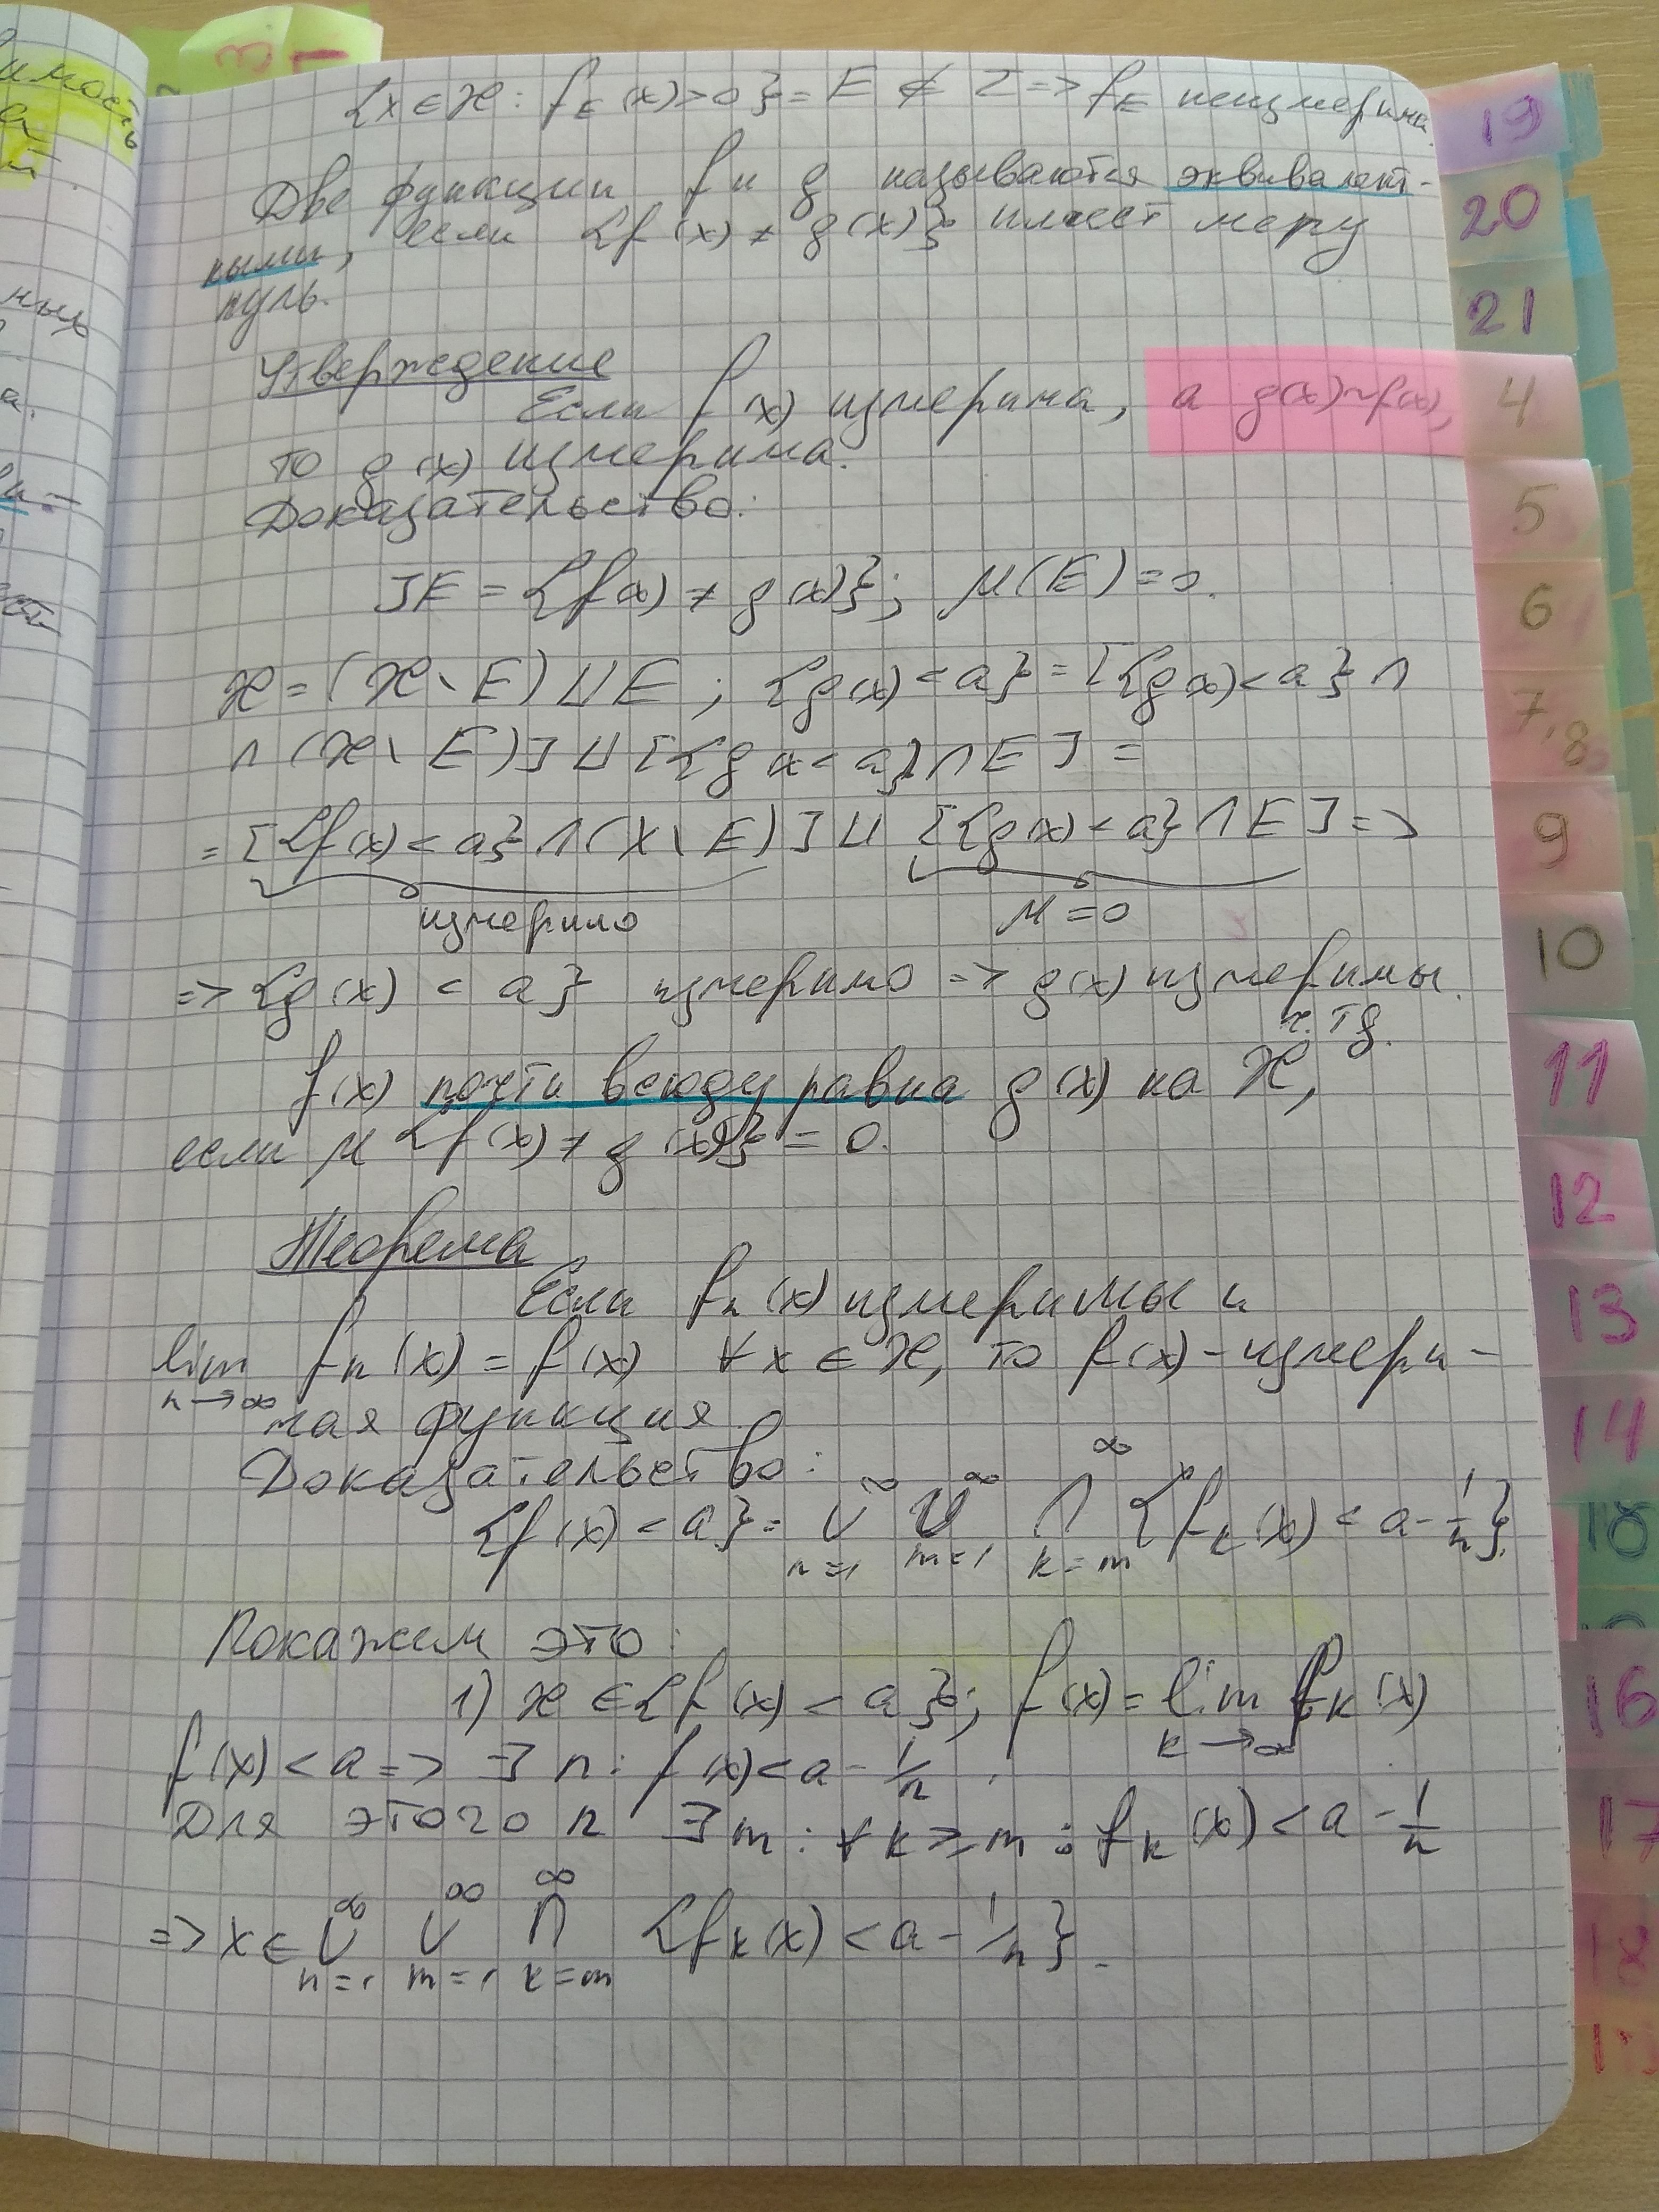 {x ∈ X : f_E(x) > 0} = E ∉ Σ => f_E неизмерима.
Две функции f и g называются эквивалент-
ными, если {f(x) ≠ g(x)} имеет меру
нуль.
Утверждение
Если f(x) измерима, а g(x)~f(x),
то g(x) измерима.
Доказательство:
] E = {f(x) ≠ g(x)}; μ(E) = 0.
X = (X \ E) ⊔ E ; {g(x) < a} = [{g(x) < a} ∩
∩ (X \ E)] ⊔ [{g(x < a} ∩ E] =
= [{f(x) < a} ∩ (X \ E)] ⊔ [{g(x) < a} ∩ E] =>
измеримо μ = 0
=> {g(x) < a} измеримо => g(x) измеримы.
ч.тд.
f(x) почти всюду равна g(x) на X,
если μ {f(x) ≠ g(x)} = 0.
Теорема
Если f_n(x) измеримы и
lim f_n(x) = f(x) ∀x ∈ X, то f(x) - измери-
n→∞
мая функция.
Доказательство:
∞ ∞ ∞
{f(x) < a} = ∪ ∪ ∩ {f_k(x) < a - 1/n}.
n=1 m=1 k=m
Покажем это:
1) x ∈ {f(x) < a}; f(x) = lim f_k(x)
k→∞
f(x) < a => ∃ n : f(x) < a - 1/n .
Для этого n ∃ m : ∀ k ≥ m : f_k(x) < a - 1/n
∞ ∞ ∞
=> x ∈ ∪ ∪ ∩ {f_k(x) < a - 1/n}.
n=1 m=1 k=m
19
20
21
4
5
6
7,8
9
10
11
12
13
14
18
16
17
18